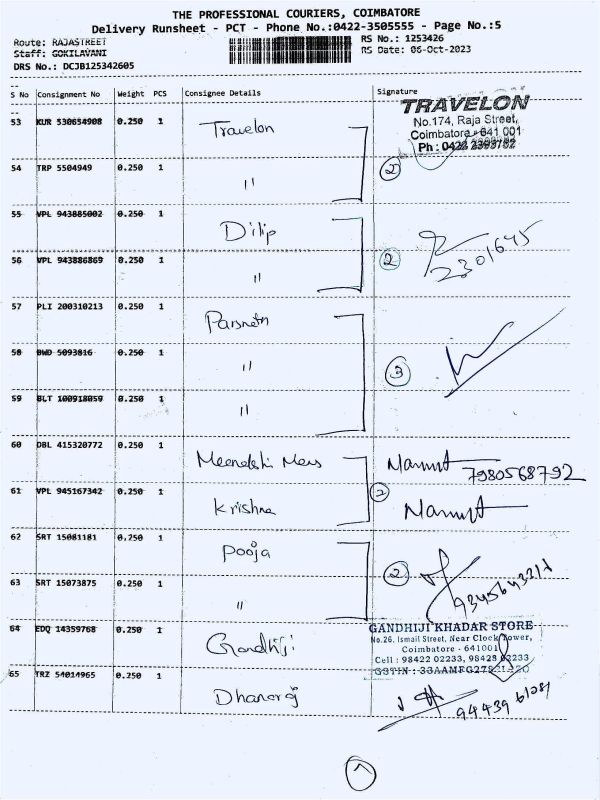 THE PROFESSIONAL COURIERS, COIMBATORE
Delivery Runsheet - PCT - Phone No.:0422-3505555 - Page No.:5
Route: RAJASTREET
RS No.: 1253426
Staff: GOKILAVANI
RS Date: 06-Oct-2023
DRS No.: DCJB125342605
S No Consignment No Weight PCS Consignee Details Signature
TRAVELON
No.174, Raja Street,
Coimbatore - 641 001
Ph : 0422 2393752
53 KUR 530654908 0.250 1 Travelon
54 TRP 5504949 0.250 1 "
2
55 VPL 943885002 0.250 1 Dilip
56 VPL 943886869 0.250 1 "
2 2301645
57 PLI 200310213 0.250 1
58 BWD 5093816 0.250 1 "
3
59 BLT 100918059 0.250 1 "
60 DBL 415320772 0.250 1
7980568792
61 VPL 945167342 0.250 1 Krishna
2
62 SRT 15081181 0.250 1 Pooja
2
63 SRT 15073875 0.250 1 "
64 EDQ 14359768 0.250 1 Gandhiji
GANDHIJI KHADAR STORE
No.26, Ismail Street, Near Clock Tower,
Coimbatore - 641001
Cell : 98422 02233, 98428 02233
65 TRZ 54014965 0.250 1 Dhanaraj